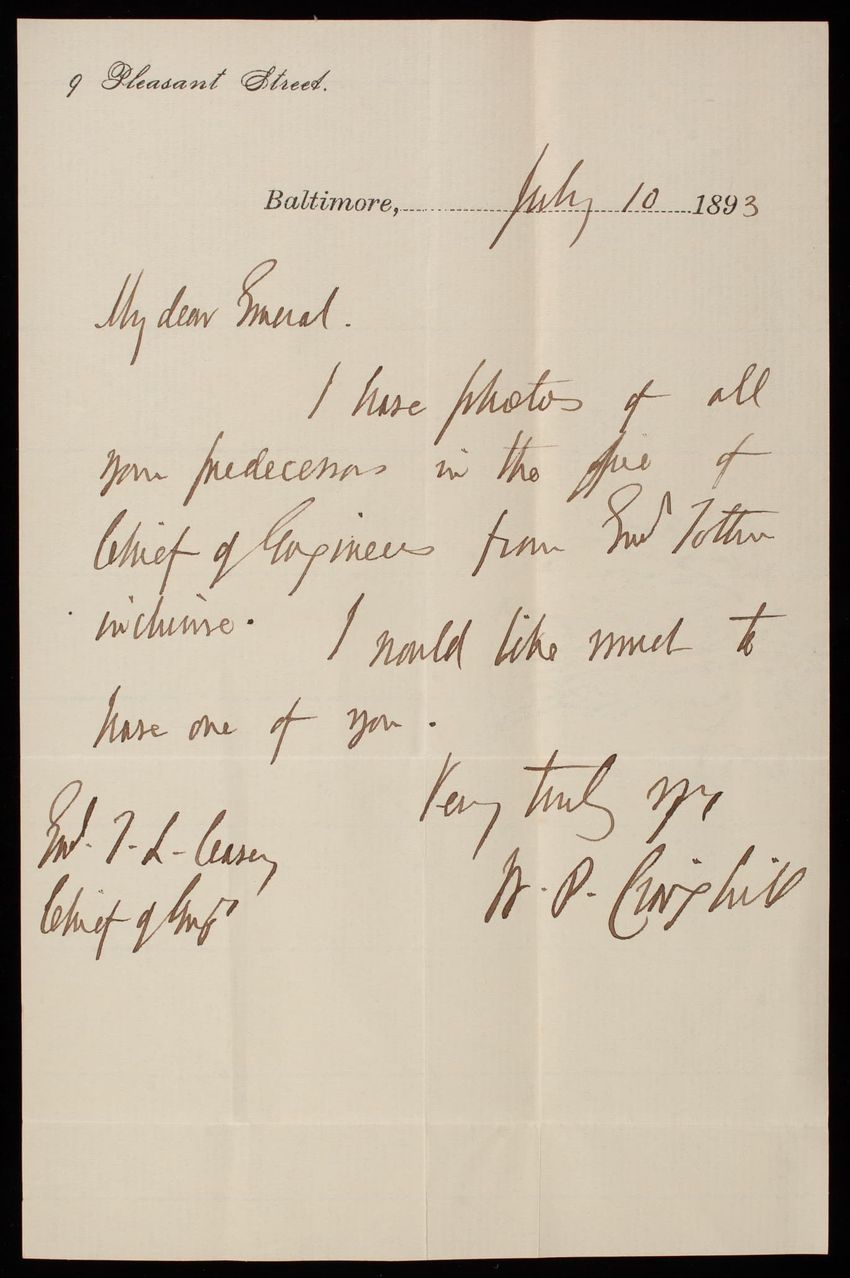 9 Pleasant Street.
Baltimore, July 10 1893
My dear General.
I have photos of all
your predecessors in the office of
Chief of Engineers from Genl Totten
inclusive. I would like much to
have one of you.
Very truly yrs
W. P. Craighill
Genl. T. L. Casey
Chief of Engrs